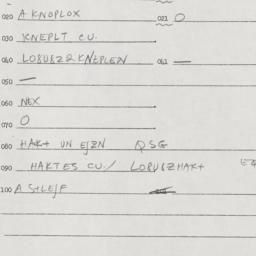 020 A KNOPLOX 021 O
030 KNEPLT CU.
040 LOBUSZ&KNEPLEN 041 —
050 —
060 NEX
070 O
080 HAK+ UN EJZN QSG
090 HAKTES CU./ LOBUSZHAK+
100 A S+LEJF